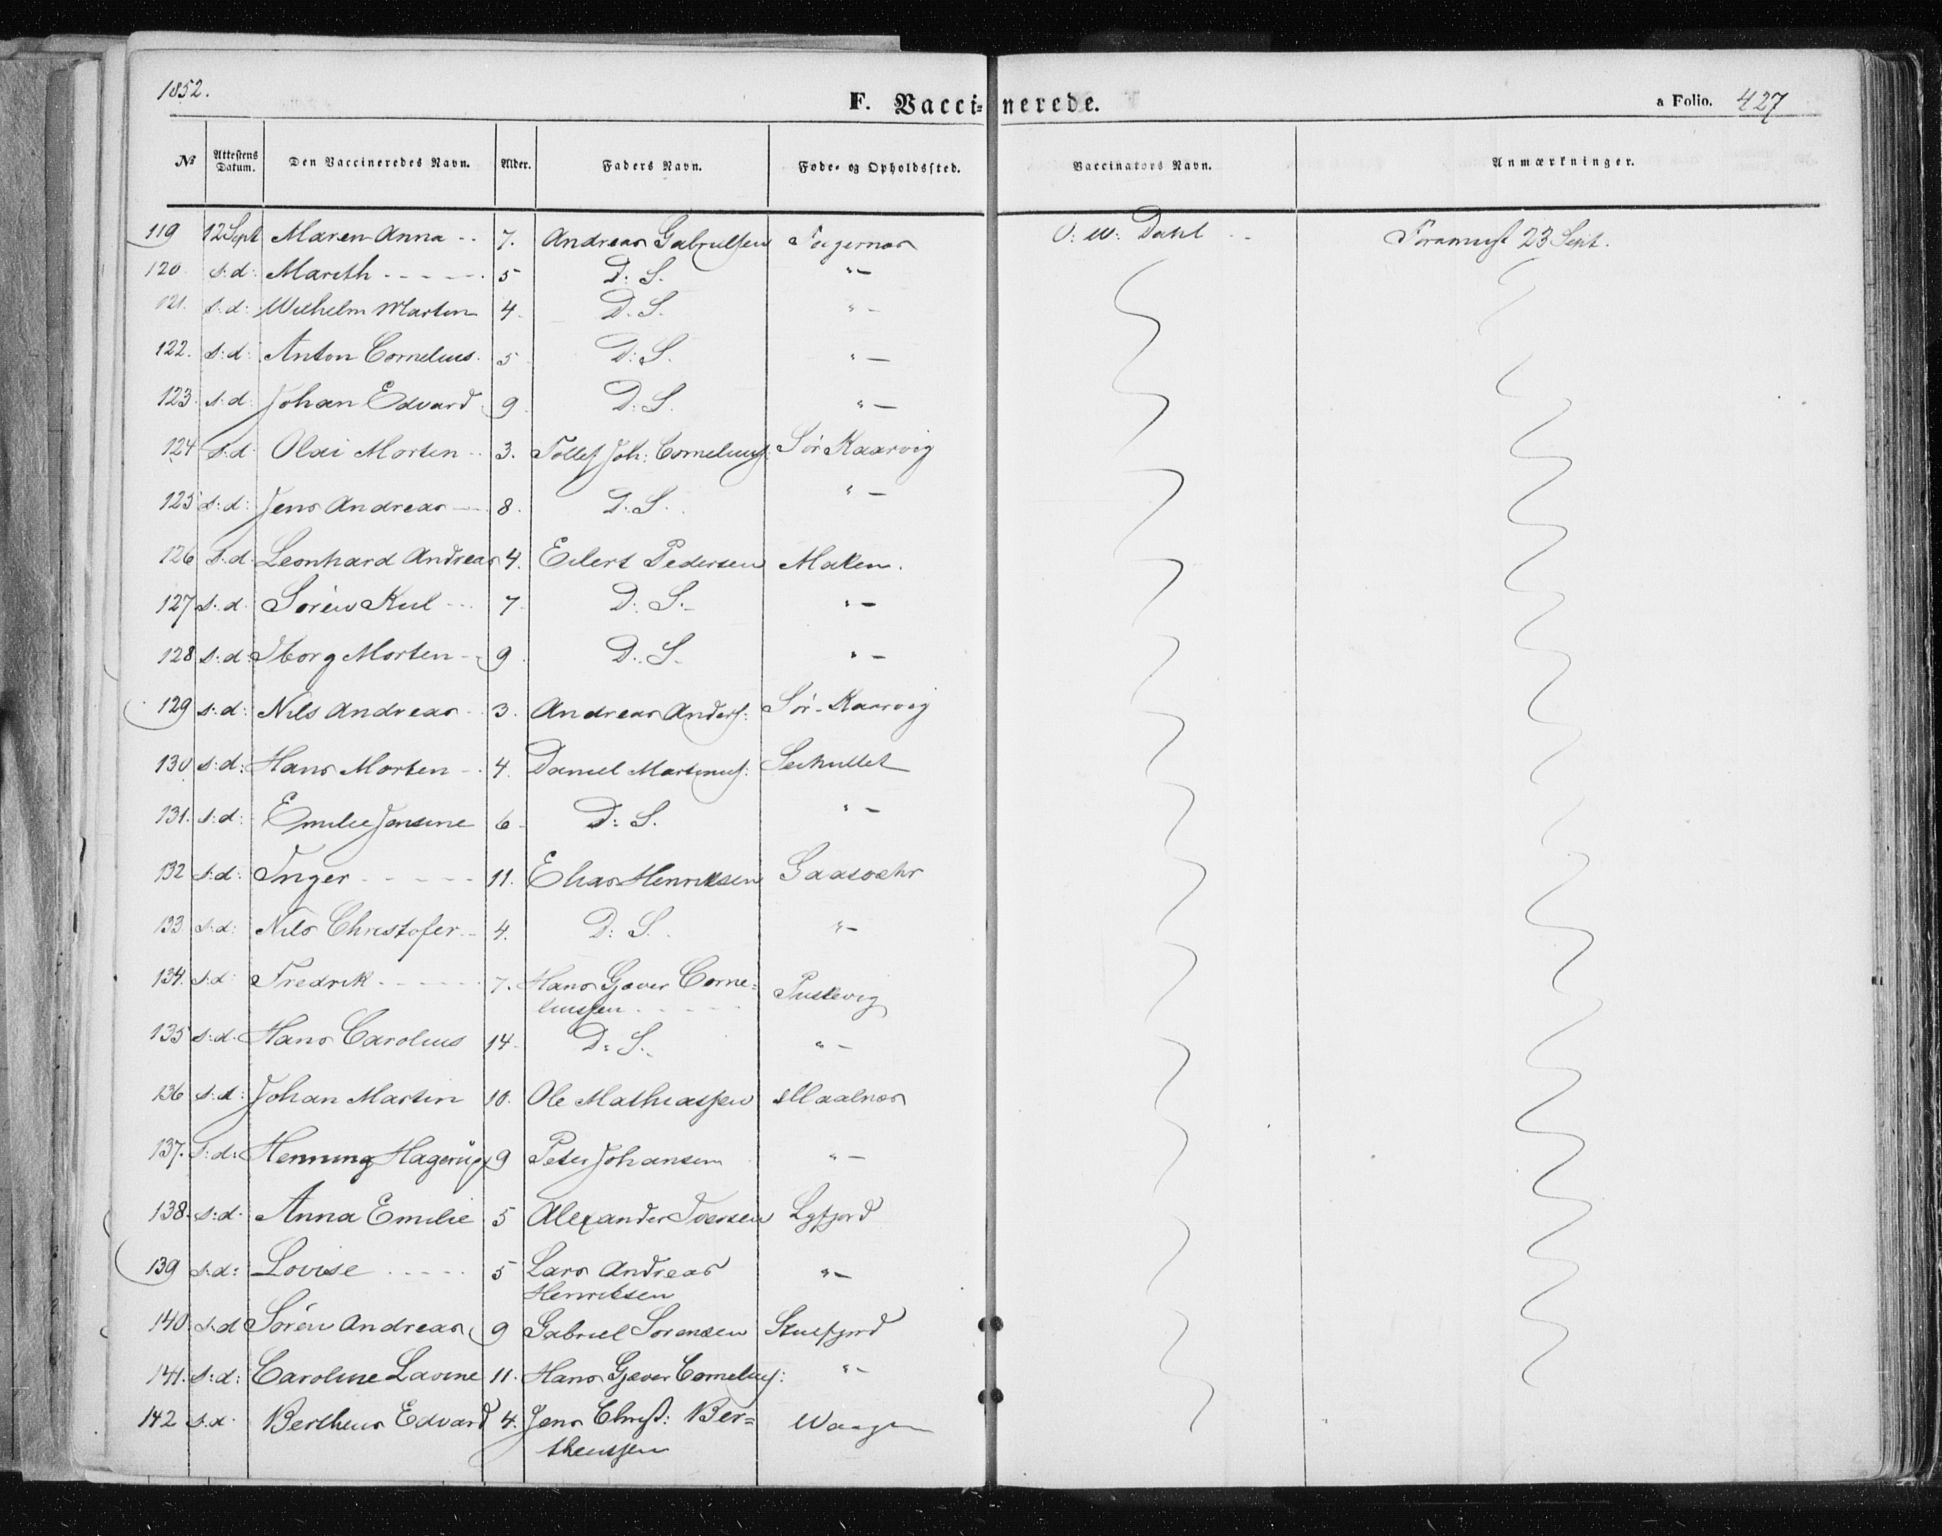 1852.
F. Vaccinerede.
a Folio. 427
№ Attestens Datum. Den Vaccineredes Navn. Alder. Faders Navn. Føde- og Opholdssted. Vaccinators Navn. Anmærkninger.
119 12 Sept Maren Anna 7. Andreas Gabrielsen Dahl 23 Sept.
120 s:d: Mareth 5 D:S. "–
121. s:d: Wilhelm Martin 4 D.S. "–
122. s:d: Anton Cornelius 5 D:S. "–
123. s:d: Johan Edvard 9 D:S. "–
124 s:d: Olai Morten 3. Tollef Joh: Corneliusf: Sør Kaarvig
125 s:d: Jens Andreas 8. D.S. "–
126 s:d: Leonhard Andreas 4. Eilert Pedersen Maken.
127 s:d: Sören 7 D:S. "–
128 s:d: Morten 9 D:S. "–
129 s:d: Nils Andreas 3. Andreas Andersf: Sør-Kaarvig
130 s:d: Hans Morten 4. Daniel Martinusf:
131. s:d: Emilie Jensine 6 D:S. "–
132 s:d: Inger 11. Elias Henriksen Gaasvær
133 s:d: Nils Christofer 4. D:S. "–
134. s:d: Fredrik 7. Hans Gjæver Corne=
liussen
135 s:d: Hans Carolius 14 D:S. "–
136 s:d: Johan Martin 10. Ole Mathiassen Maalnes
137. s:d: Henning Hagerup 9 Peter Johansen "–
138. s:d: Anna Emilie 5 Alexander Iversen Lyfjord
139 s:d: Lovise 5 Lars Andreas "–
Henriksen
140. s:d Sören Andreas 9 Gabriel Sörensen Skulsfjord
141. s:d: Caroline Lavine 11. Hans Gjæver Corneliusf: "–
142 s:d. Bertheus Edvard 4. Jens Christ: Ber=
theussen Waagen